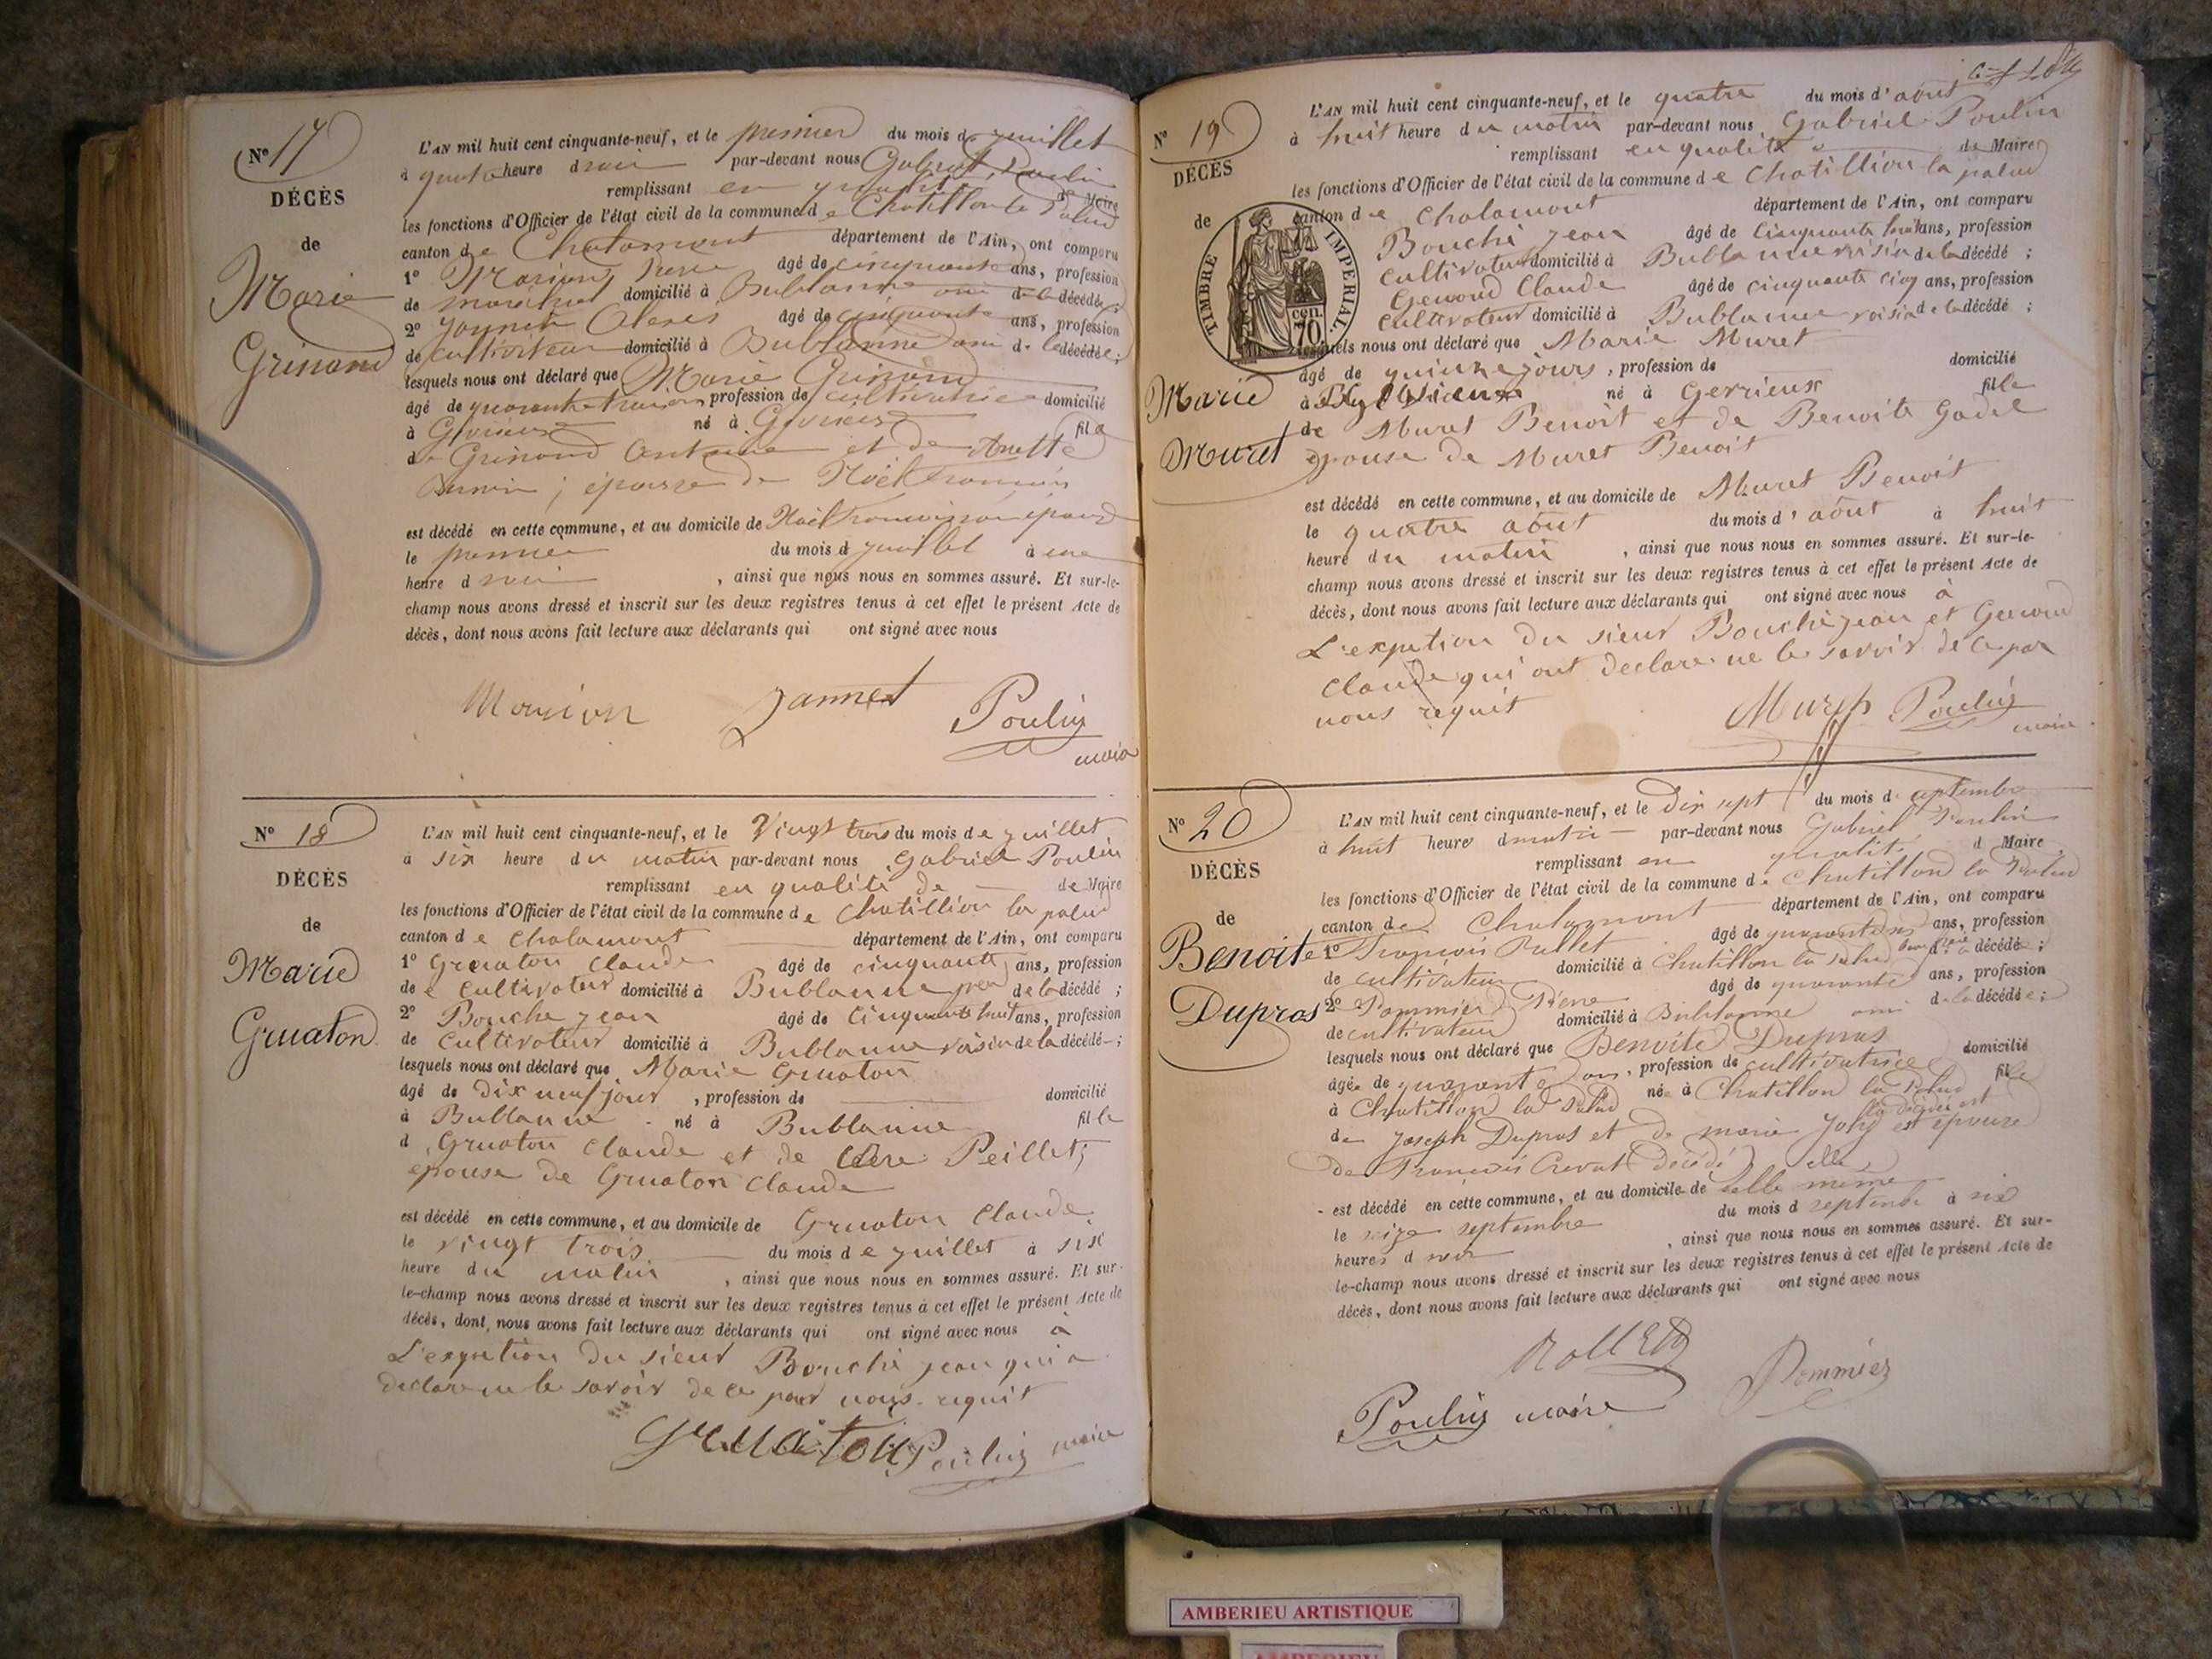 Nº 17
DÉCÈS
de
Marie
Grinand
L'AN mil huit cent cinquante-neuf, et le premier du mois de juillet
à quatre heure du soir par-devant nous Gabriel Poulin
remplissant en qualité de Maire
les fonctions d'Officier de l'état civil de la commune de Chatillon la Palud
canton de Chalamont département de l'Ain, ont comparu
1º Pierre âgé de cinquante ans, profession
de domicilié à Bublanne ami de la décédée
2º âgé de cinquante ans, profession
de cultivateur domicilié à Bublanne ami de la décédée;
lesquels nous ont déclaré que Marie Grinand
âgé de quarante ans, profession de cultivatrice domicilié
à né à fille
de Grinand Antoine et de Anette
épouse de Noël
est décédé en cette commune, et au domicile de Noël
le premier du mois de juillet à une
heure du soir, ainsi que nous nous en sommes assuré. Et sur-le-
champ nous avons dressé et inscrit sur les deux registres tenus à cet effet le présent Acte de
décès, dont nous avons fait lecture aux déclarants qui ont signé avec nous
Jannet Poulin
maire
Nº 18
DÉCÈS
de
Marie
Gruaton
L'AN mil huit cent cinquante-neuf, et le Vingt trois du mois de juillet
à six heure du matin par-devant nous Gabriel Poulin
remplissant en qualité de de Maire
les fonctions d'Officier de l'état civil de la commune de Chatillion la palud
canton de Chalamont département de l'Ain, ont comparu
1º Gruaton Claude âgé de cinquante ans, profession
de cultivateur domicilié à Bublanne père de la décédé;
2º Bouche jean âgé de Cinquante huit ans, profession
de Cultivateur domicilié à Bublanne voisin de la décédé;
lesquels nous ont déclaré que Marie Gruaton
âgé de Dix neuf jour, profession de domicilié
à Bublanne né à Bublanne fille
d Gruaton Claude et de Peillet;
epouse de Gruaton Claude
est décédé en cette commune, et au domicile de Gruaton Claude
le vingt trois du mois de juillet à six
heure du matin, ainsi que nous nous en sommes assuré. Et sur-
le-champ nous avons dressé et inscrit sur les deux registres tenus à cet effet le présent Acte de
décès, dont nous avons fait lecture aux déclarants qui ont signé avec nous à
L'exeption du sieur Bouché jean qui a
declare ne le savoir de ce par nous requit
Gruaton Poulin maire
Nº 19
DÉCÈS
de
Marie
Muret
TIMBRE IMPERIAL.
70 cen.
L'AN mil huit cent cinquante-neuf, et le quatre du mois d'août
à huit heure du matin par-devant nous Gabriel Poulin
remplissant en qualité de Maire
les fonctions d'Officier de l'état civil de la commune de Chatillion la palud
canton de Chalamont département de l'Ain, ont comparu
Bouché jean âgé de Cinquante huit ans, profession
cultivateur domicilié à Bublanne voisin de la décédé;
Genoud Claude âgé de cinquante cinq ans, profession
cultivateur domicilié à Bublanne voisin de la décédé;
lesquels nous ont déclaré que Marie Muret
âgé de quinze jours, profession de domicilié
à né à Gevrieux fille
de Muret Benoit et de Benoite Gadel
epouse de Muret Benoit
est décédé en cette commune, et au domicile de Muret Benoit
le quatre août du mois d'août à huit
heure du matin, ainsi que nous nous en sommes assuré. Et sur-le-
champ nous avons dressé et inscrit sur les deux registres tenus à cet effet le présent Acte de
décès, dont nous avons fait lecture aux déclarants qui ont signé avec nous à
L'exeption du sieur Bouché jean et Genoud
Claude qui ont declare ne le savoir de ce par
nous requit
Muret Poulin
maire
Nº 20
DÉCÈS
de
Benoite
Dupras
L'AN mil huit cent cinquante-neuf, et le Dix sept du mois de septembre
à huit heure du matin par-devant nous Gabriel Poulin
remplissant en qualité d Maire
les fonctions d'Officier de l'état civil de la commune de Chatillon la Palud
canton de Chalamont département de l'Ain, ont comparu
1º François âgé de ans, profession
de cultivateur domicilié à Chatillon la Palud décédé;
2º Pommier Pierre âgé de quarante ans, profession
de cultivateur domicilié à Bublanne ami de la décédée;
lesquels nous ont déclaré que Benoite Dupras
âgée de quarante ans, profession de cultivatrice domicilié
à Chatillon la Palud née à Chatillon la Palud fille
de Joseph Dupras et de marie est épouse
de François (décédé) elle
est décédé en cette commune, et au domicile de elle même
le seize septembre du mois d septembre à six
heures d soir, ainsi que nous nous en sommes assuré. Et sur-
le-champ nous avons dressé et inscrit sur les deux registres tenus à cet effet le présent Acte de
décès, dont nous avons fait lecture aux déclarants qui ont signé avec nous
Pommier
Poulin maire
AMBERIEU ARTISTIQUE
AMBERIEU